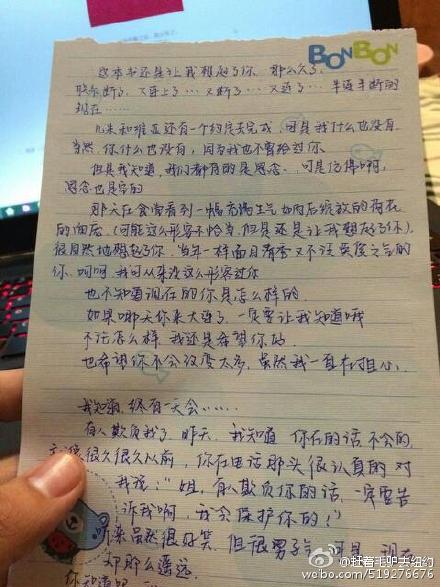 BONBON
这本书还是让我想起了你 那么久了,
联系断了, 又连上了… 又断了… 又连了… 半连半断的
现在……
几米和雅正还有一个约定去完成, 可是我什么也没有
当然, 你什么也没有, 因为我也不曾给过你
但是我知道, 我们都有的是思念. 可是仿佛啊,
思念也是空的
那天在食堂看到一幅充满生气如雨后绽放的荷花
的油画, (可能这么形容不恰当, 但是还是让我想起了你),
很自然地想起了你, 当年一样面目清秀又不泛英俊之气的
你, 呵呵, 我可从来没这么形容过你
也不知道现在的你是怎么样的.
如果哪天你来大连了, 一定要让我知道哦
不论怎么样, 我还是希望你的.
也希望你不会改变太多, 虽然我一直在担心.
我知道, 终有一天会……
有人欺负我了, 昨天, 我知道 你在的话不会的,
很久很久以前, 你在电话那头很认真的对
我说: "姐, 有人欺负你的话, 一定要告
诉我啊, 我会保护你的!"
听来虽然很好笑, 但很男子气, 可是, 现在
却那么遥远.
你知道吗
@赶着毛驴去纽约
weibo.com/519276676